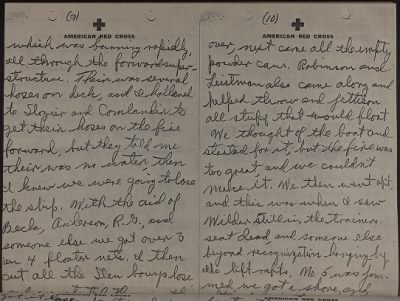 (9)
AMERICAN RED CROSS
which was burning rapidly,
all through the forward super-
structure. Their was several
hoses on deck, and I hollered
to Slozier and Comlander to
get their hoses on the fire
forward, but they told me
their was no water then
I knew we were going to lose
the ship. With the aid of
Beck, Anderson, R.G., and
someone else we got over 3
or 4 floater nets. I then
cut all the Ilen bouys lose
(10)
AMERICAN RED CROSS
over, next came all the empty
powder cans. Robinson and
Leistman also came along and
helped throw and jettison
all stuff that would float
We thought of the boat and
started for it, but the fire was
too great and we couldn't
make it. We then went aft,
and this was when I saw
Wilder still in the trainers
seat dead and someone else
beyond recognization hanging by
the lift rafts. No. 5 was jam-
med, we got a shore, and